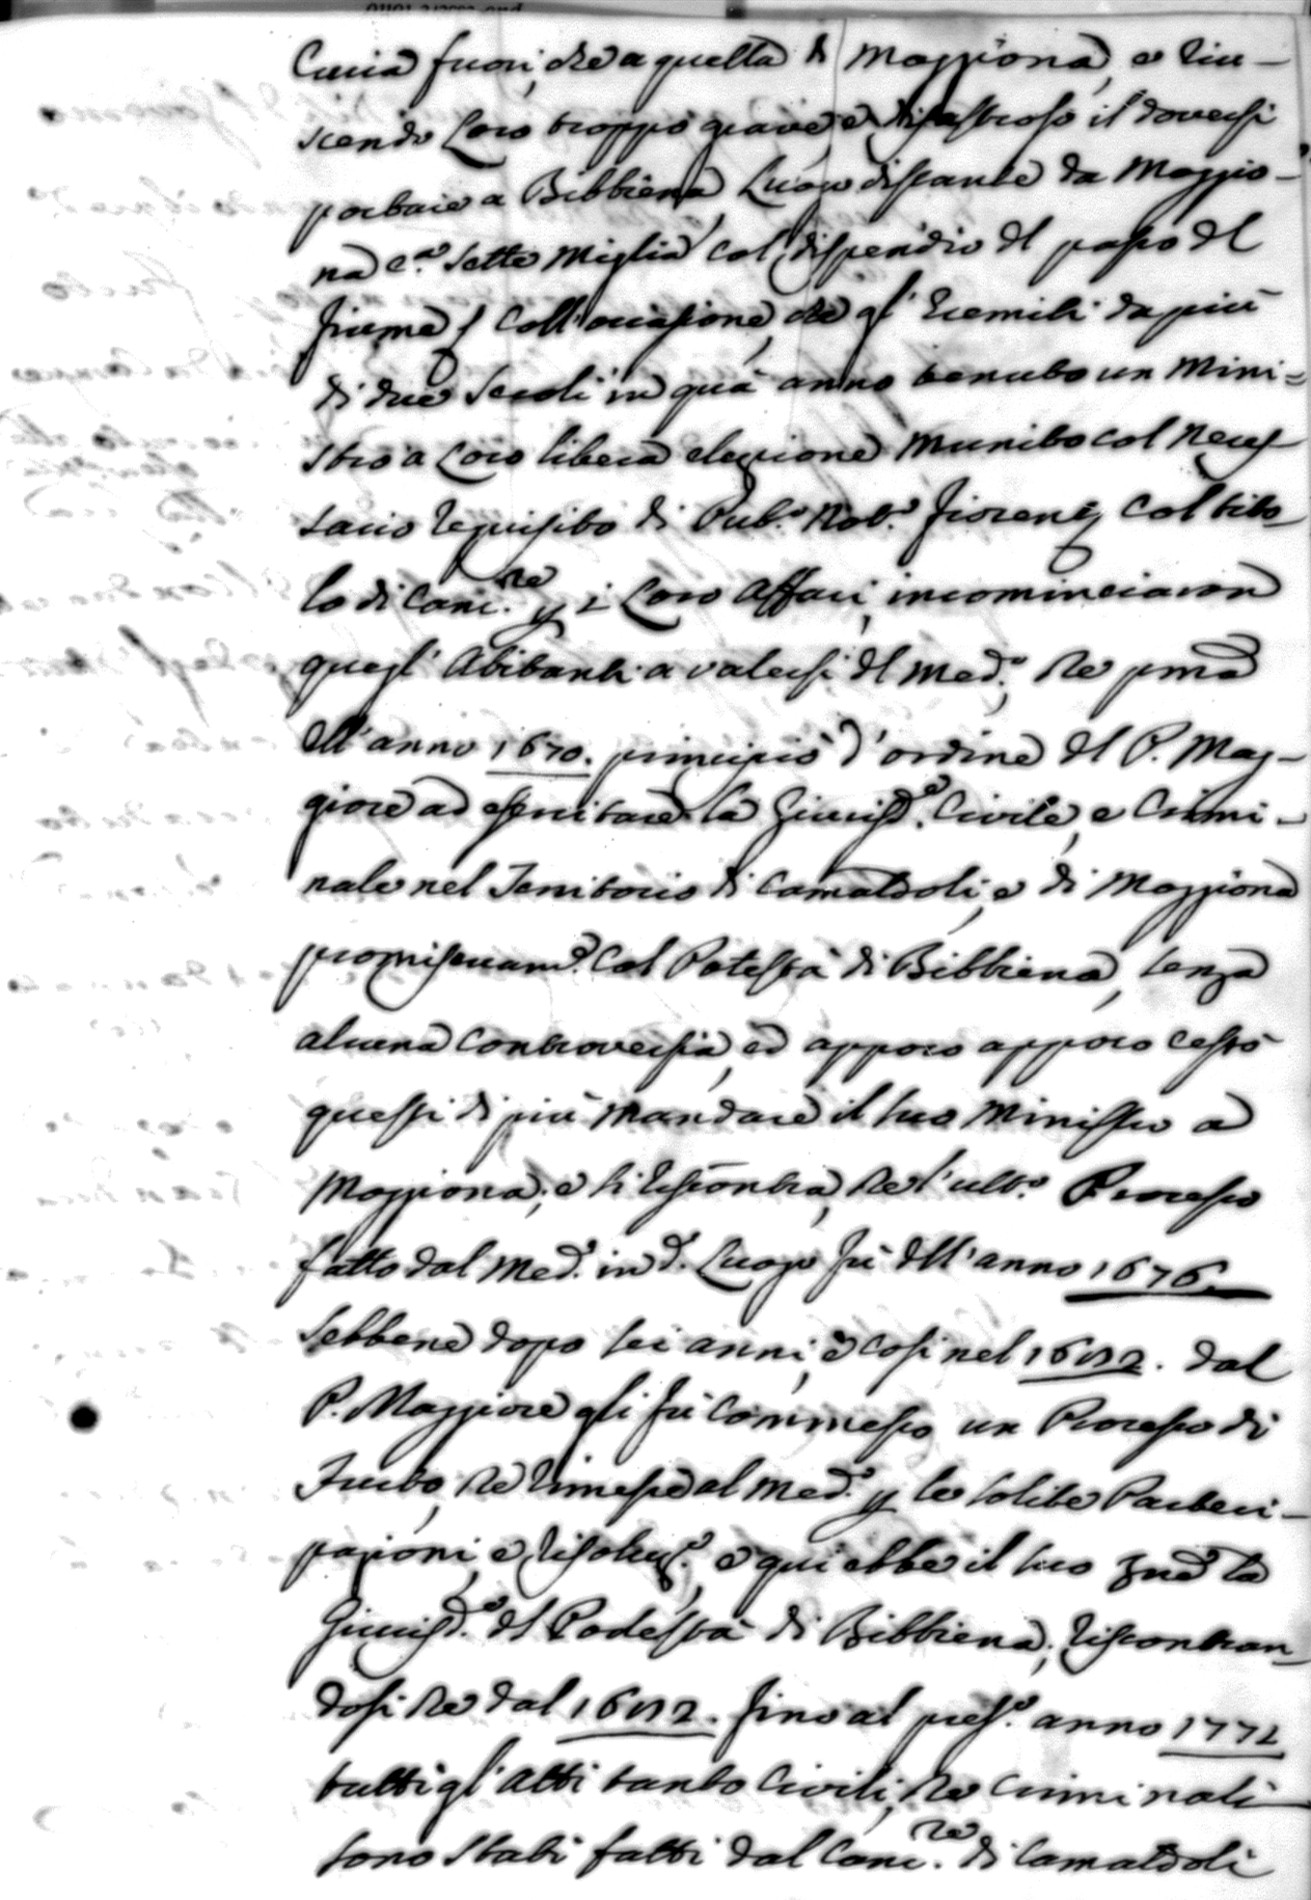 Curia fuori, che a quella di Moggiona, e riu-
scendo Loro troppo grave, e disastroso il doversi
portare a Bibbiena, Luogo distante da Moggio-
na c.a sette Miglia col dispendio del passo del
fiume, coll'occasione, che gl'Eremiti da più
di due Secoli in quà anno tenuto un Mini-
stro a Loro libera elezione Munito col Neces
sario requisito di Pub.o Not.o Fioren. col tito
lo di Canc.re p i Loro Affari, incominciaron
quegl'Abitanti a valersi del Med.o, che prima
dell'anno 1670. principiò d'ordine del P. Mag-
giore ad esercitare la Giurisd.e Civile, e Crimi-
nale nel Territorio di Camaldoli, e di Moggiona
promiscuam.e col Potestà di Bibbiena, senza
alcuna controversia, ed appoco appoco cessò
questi di più Mandare il suo Ministro a
Moggiona; e si riscontra, che l'ult.o Processo
fatto dal Med.o in d.o Luogo fù dell'anno 1676
Sebbene dopo sei anni, e così nel 1682. dal
P. Maggiore gli fù commesso un Processo di
Furto, che rimesse al Med.o p le solite Parteci-
pazioni, e risoluz.e, e qui ebbe il suo fine la
Giurisd.e del Podestà di Bibbiena; riscontran-
dosi che dal 1682. fino al pres.e anno 1772
tutti gl'Atti tanto Civili, che Criminali
sono stati fatti dal Canc.re di Camaldoli